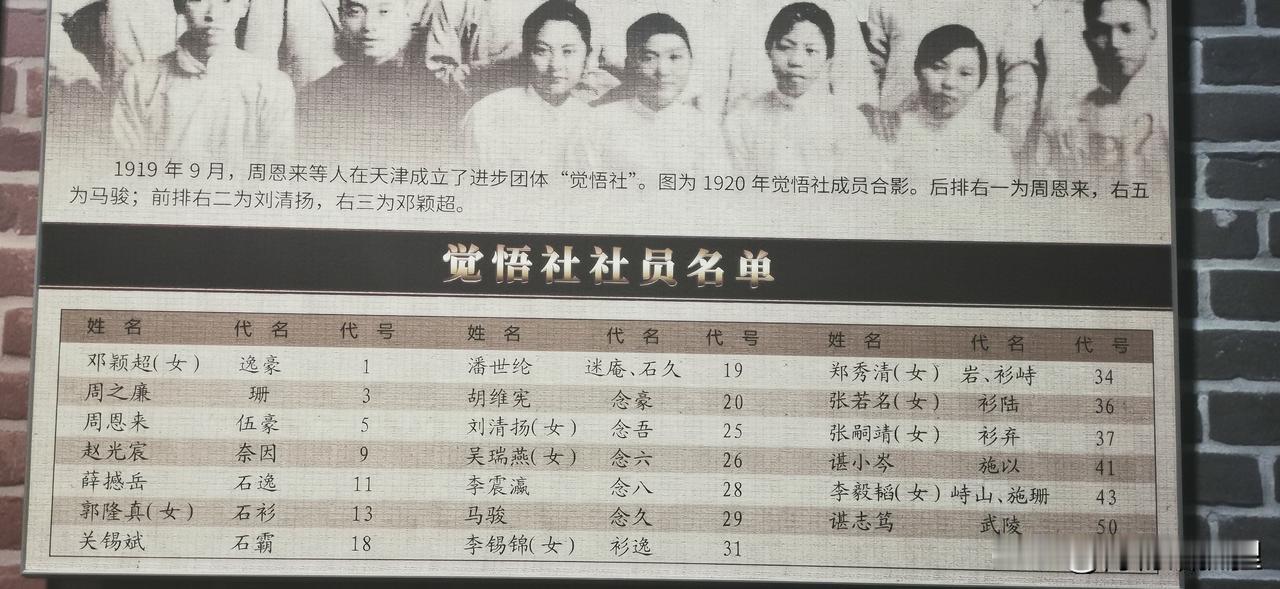 1919 年 9 月，周恩来等人在天津成立了进步团体“觉悟社”。图为 1920 年觉悟社成员合影。后排右一为周恩来，右五
为马骏；前排右二为刘清扬，右三为邓颖超。
觉悟社社员名单
姓 名 代 名 代 号 姓 名 代 名 代 号 姓 名 代 名 代 号
邓颖超(女) 逸豪 1 潘世纶 迷庵、石久 19 郑秀清(女) 岩、衫峙 34
周之廉 珊 3 胡维宪 念豪 20 张若名(女) 衫陆 36
周恩来 伍豪 5 刘清扬(女) 念吾 25 张嗣靖(女) 衫弃 37
赵光宸 奈因 9 吴瑞燕(女) 念六 26 谌小岑 施以 41
薛撼岳 石逸 11 李震瀛 念八 28 李毅韬(女) 峙山、施珊 43
郭隆真(女) 石衫 13 马骏 念久 29 谌志笃 武陵 50
关锡斌 石霸 18 李锡锦(女) 衫逸 31